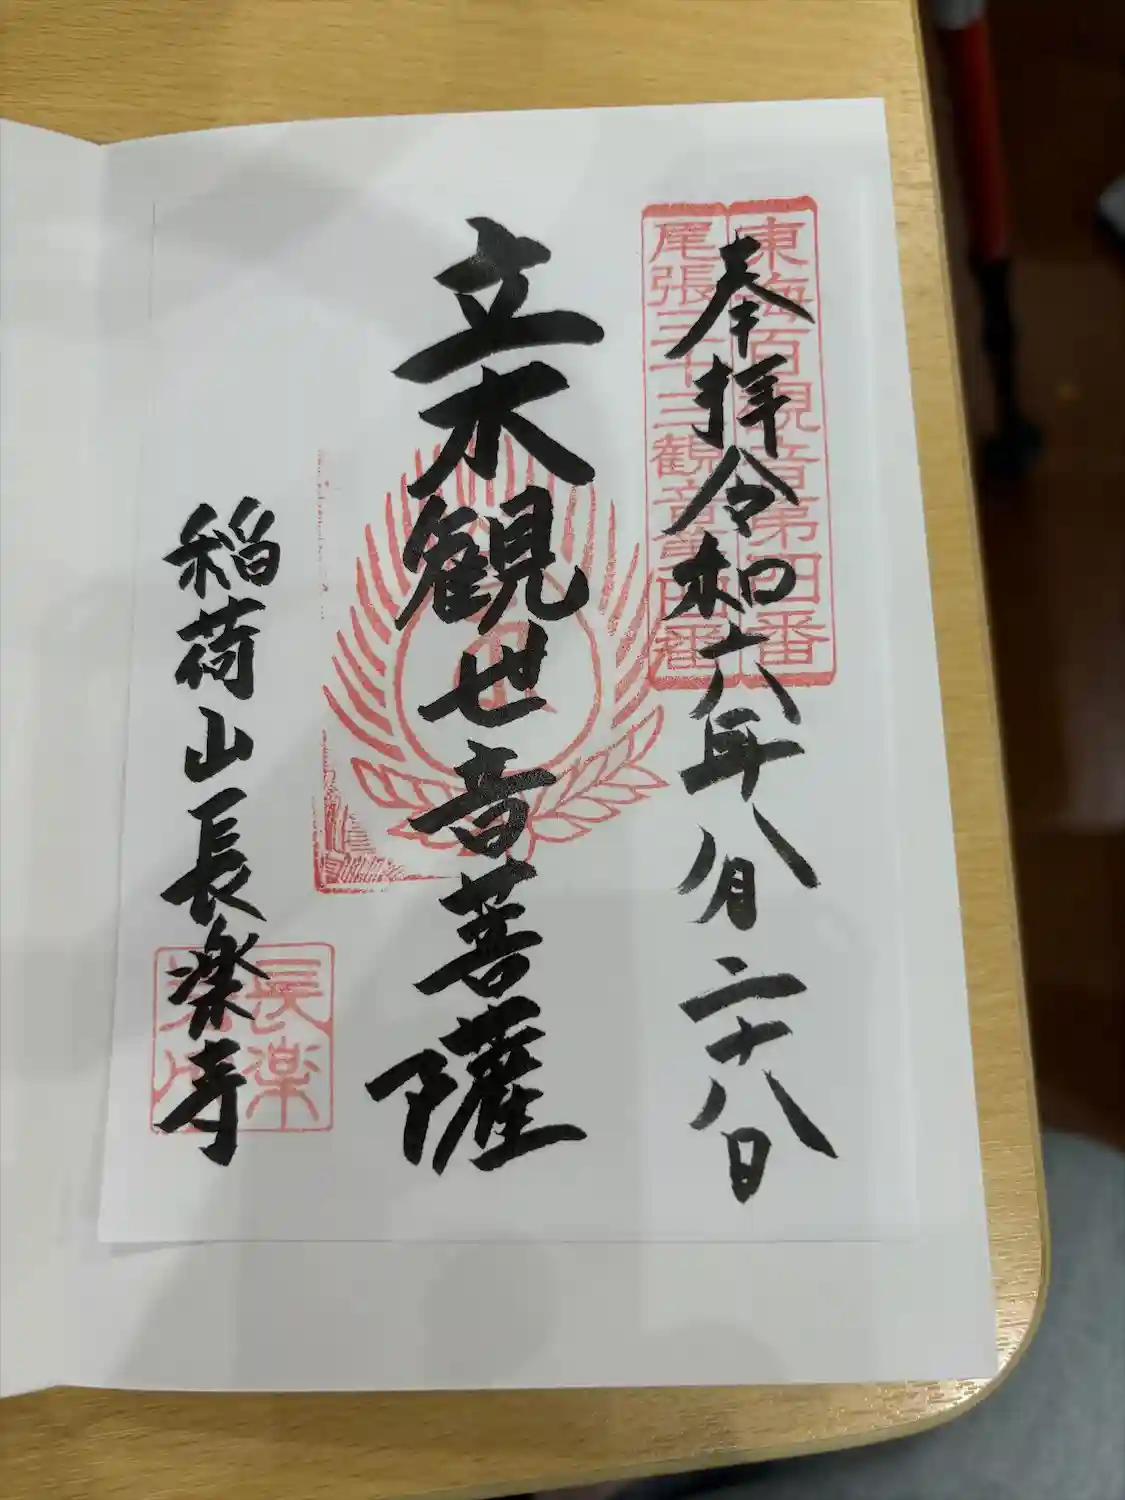 東海百観音第四番
尾張三十三観音第四番
奉拝令和六年八月二十八日
立木観世音菩薩
稲荷山長楽寺
長楽